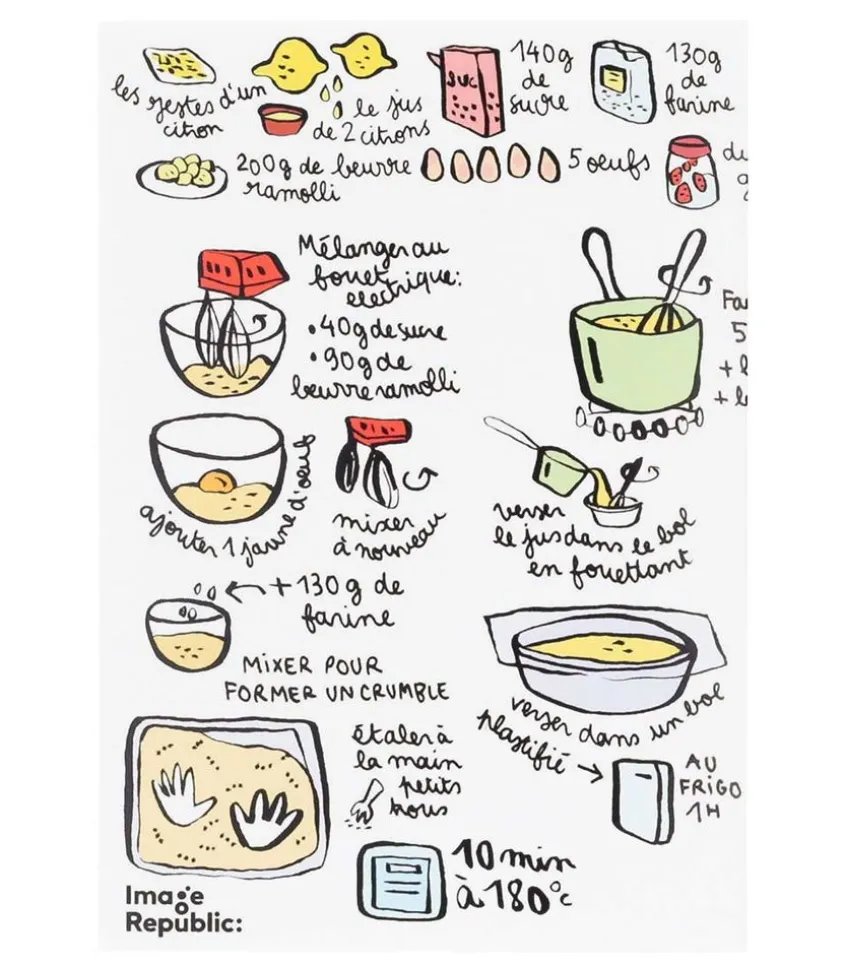 les zestes d'un
citron
le jus
de 2 citrons
SUC
140g
de
sucre
130g
de
farine
200g de beurre
ramolli
5 oeufs
du
Mélanger au
fouet
electrique:
• 40g de sucre
• 90g de
beurre ramolli
Fa
5
+ l
+ l
ajouter 1 jaune d'oeuf
mixer
à nouveau
verser
le jus dans le bol
en fouettant
+ 130g de
farine
MIXER POUR
FORMER UN CRUMBLE
verser dans un bol
plastifié →
AU
FRIGO
1H
étaler à
la main
petits
trous
10 min
à 180°c
Image
Republic: